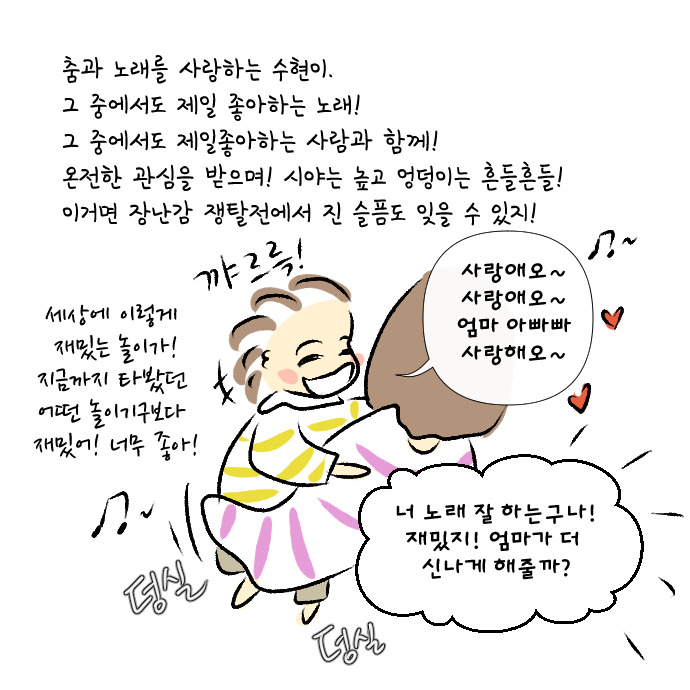 춤과 노래를 사랑하는 수현이.
그 중에서도 제일 좋아하는 노래!
그 중에서도 제일좋아하는 사람과 함께!
온전한 관심을 받으며! 시야는 높고 엉덩이는 흔들흔들!
이거면 장난감 쟁탈전에서 진 슬픔도 잊을 수 있지!
꺄르륵!
사랑애오~
사랑애오~
엄마 아빠빠
사랑해오~
세상에 이렇게
재밌는 놀이가!
지금까지 타봤던
어떤 놀이기구보다
재밌어! 너무 좋아!
너 노래 잘 하는구나!
재밌지! 엄마가 더
신나게 해줄까?
덩실
덩실